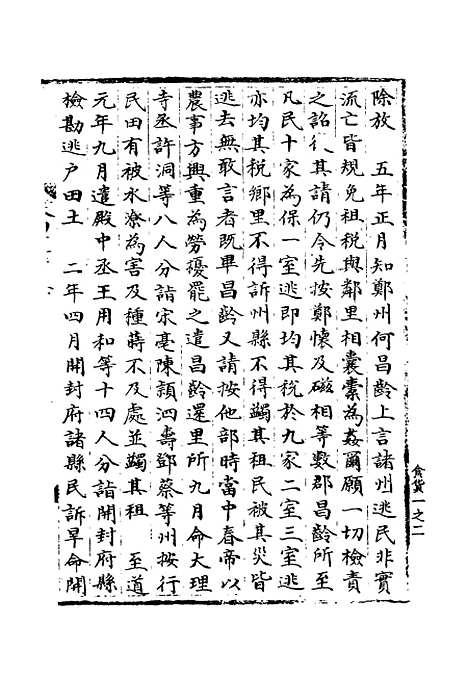 除放　五年正月知鄭州何昌齡上言諸州逃民非實
流亡皆規免租稅與鄰里相囊橐為姦爾願一切檢責
之詔從其請仍令先按鄭懷及磁相等數郡昌齡所至
凡民十家為保一室逃即均其稅於九家二室三室逃
亦均其稅鄉里不得訴州縣不得蠲其租民被其災皆
逃去無敢言者既畢昌齡又請按他部時當中春帝以
農事方興重為勞擾罷之遣昌齡還里所九月命大理
寺丞許洞等八人分詣宋亳陳潁泗壽鄧蔡等州按行
民田有被水潦為害及種蒔不及處並蠲其租　至道
元年九月遣殿中丞王用和等十四人分詣開封府縣
檢勘逃户田土　二年四月開封府諸縣民訴旱命開
食貨一之二